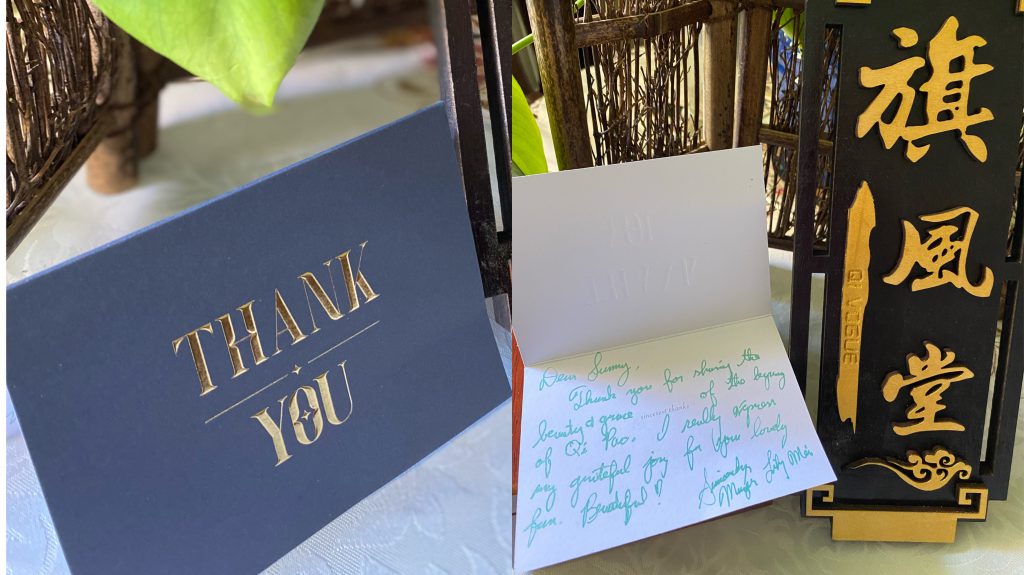 THANK
YOU
Dear Sunny,
Thank you for sharing the
beauty & grace of the
sincerest thanks
of Qi Pao. I really express
my grateful joy for your lovely
fun. Beautiful!
Sincerely,
Mayor Lily Mei
旗風堂
QI VOGUE